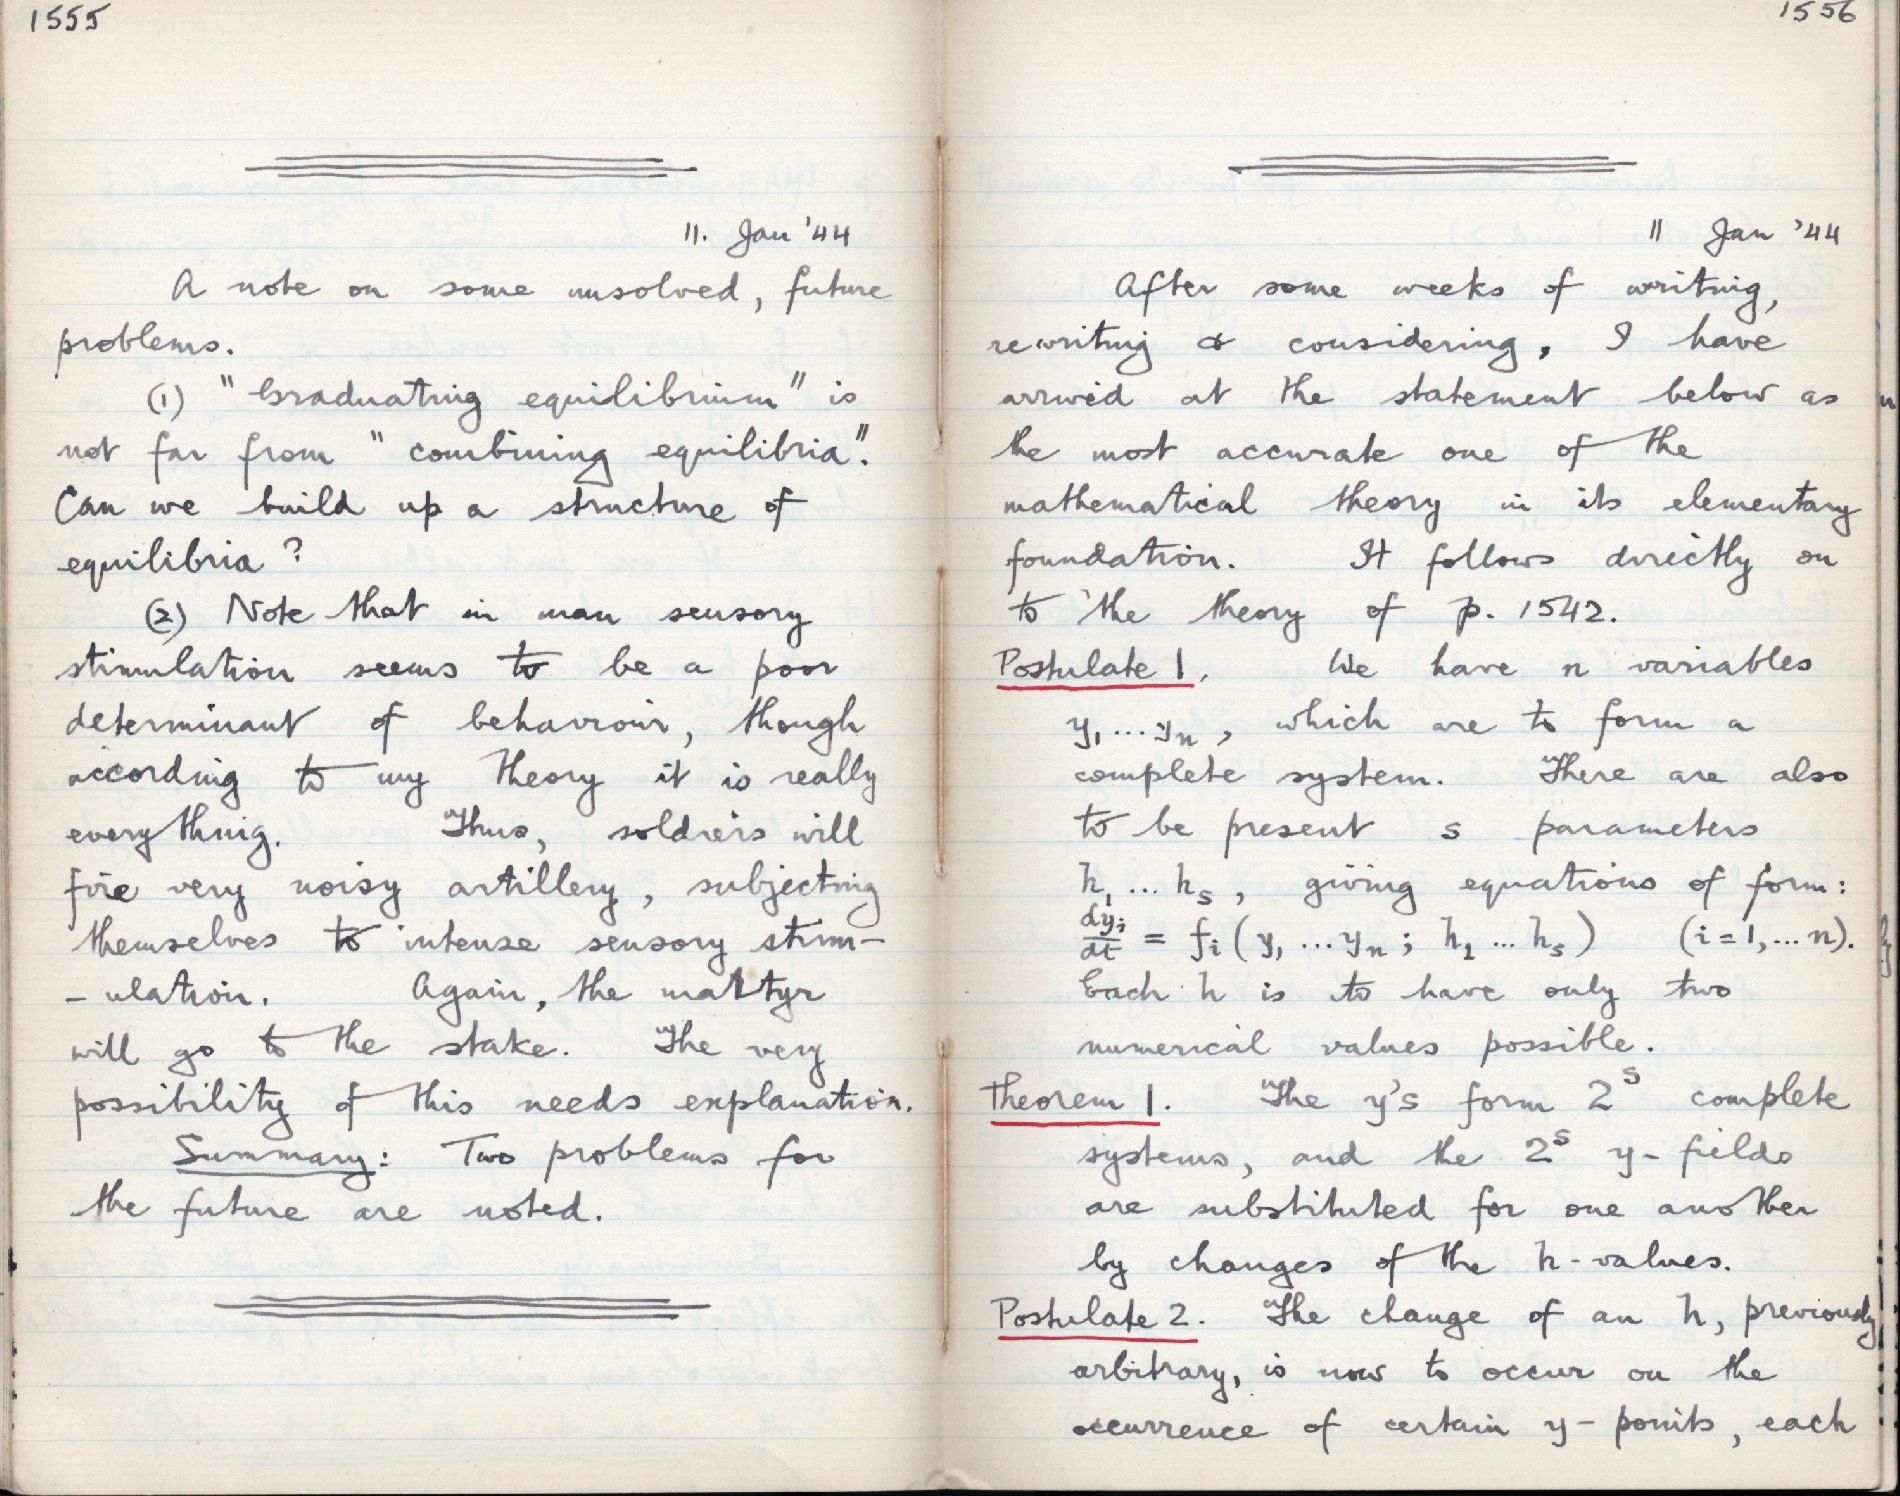 1555
11. Jan '44
A note on some unsolved, future
problems.
(1) "Graduating equilibrium" is
not far from "combining equilibria".
Can we build up a structure of
equilibria?
(2) Note that in man sensory
stimulation seems to be a poor
determinant of behaviour, though
according to my theory it is really
everything. Thus, soldiers will
fire very noisy artillery, subjecting
themselves to intense sensory stim-
-ulation. Again, the martyr
will go to the stake. The very
possibility of this needs explanation.
Summary: Two problems for
the future are noted.
1556
11 Jan '44
After some weeks of writing,
rewriting & considering, I have
arrived at the statement below as
the most accurate one of the
mathematical theory in its elementary
foundation. It follows directly on
to the theory of p. 1542.
Postulate 1. We have n variables
y₁ ... yₙ, which are to form a
complete system. There are also
to be present s parameters
h₁ ... hₛ, giving equations of form:
dyᵢ/dt = fᵢ(y₁ ... yₙ; h₁ ... hₛ) (i = 1, ... n).
Each h is to have only two
numerical values possible.
Theorem 1. The y's form 2ˢ complete
systems, and the 2ˢ y-fields
are substituted for one another
by changes of the h-values.
Postulate 2. The change of an h, previously
arbitrary, is now to occur on the
occurrence of certain y-points, each